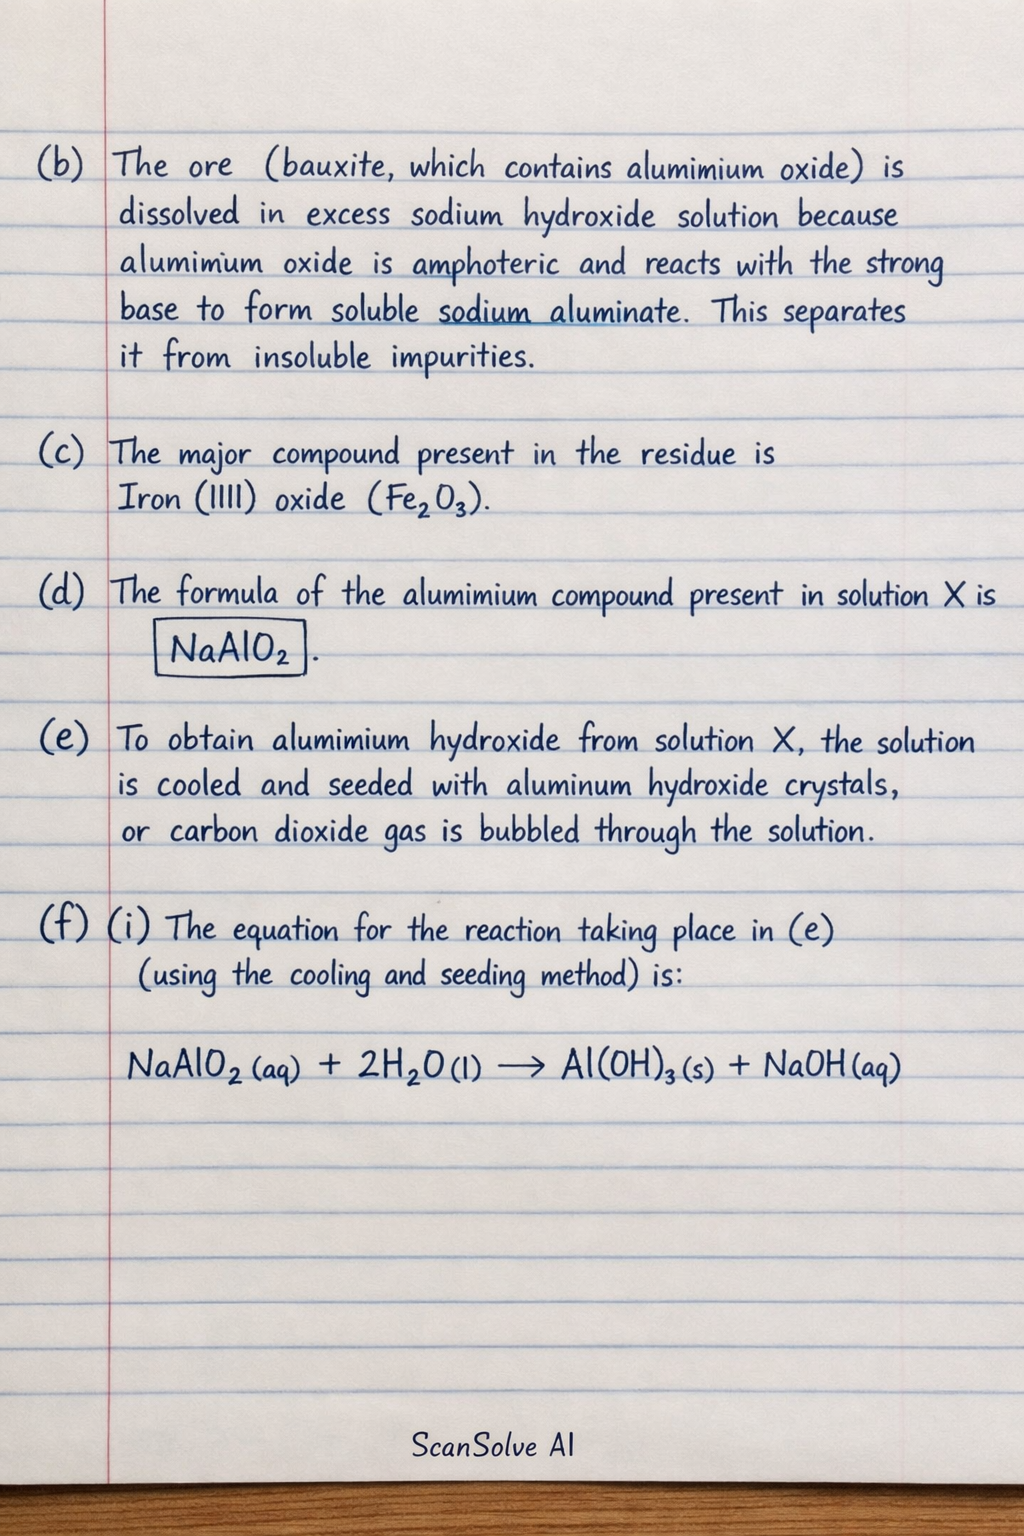 (b) The ore (bauxite, which contains alumimium oxide) is
dissolved in excess sodium hydroxide solution because
alumimium oxide is amphoteric and reacts with the strong
base to form soluble sodium aluminate. This separates
it from insoluble impurities.
(c) The major compound present in the residue is
Iron (IIII) oxide (Fe₂O₃).
(d) The formula of the alumimium compound present in solution X is
NaAlO₂.
(e) To obtain alumimium hydroxide from solution X, the solution
is cooled and seeded with aluminum hydroxide crystals,
or carbon dioxide gas is bubbled through the solution.
(f) (i) The equation for the reaction taking place in (e)
(using the cooling and seeding method) is:
NaAlO₂ (aq) + 2H₂O (l) → Al(OH)₃ (s) + NaOH (aq)
ScanSolve AI